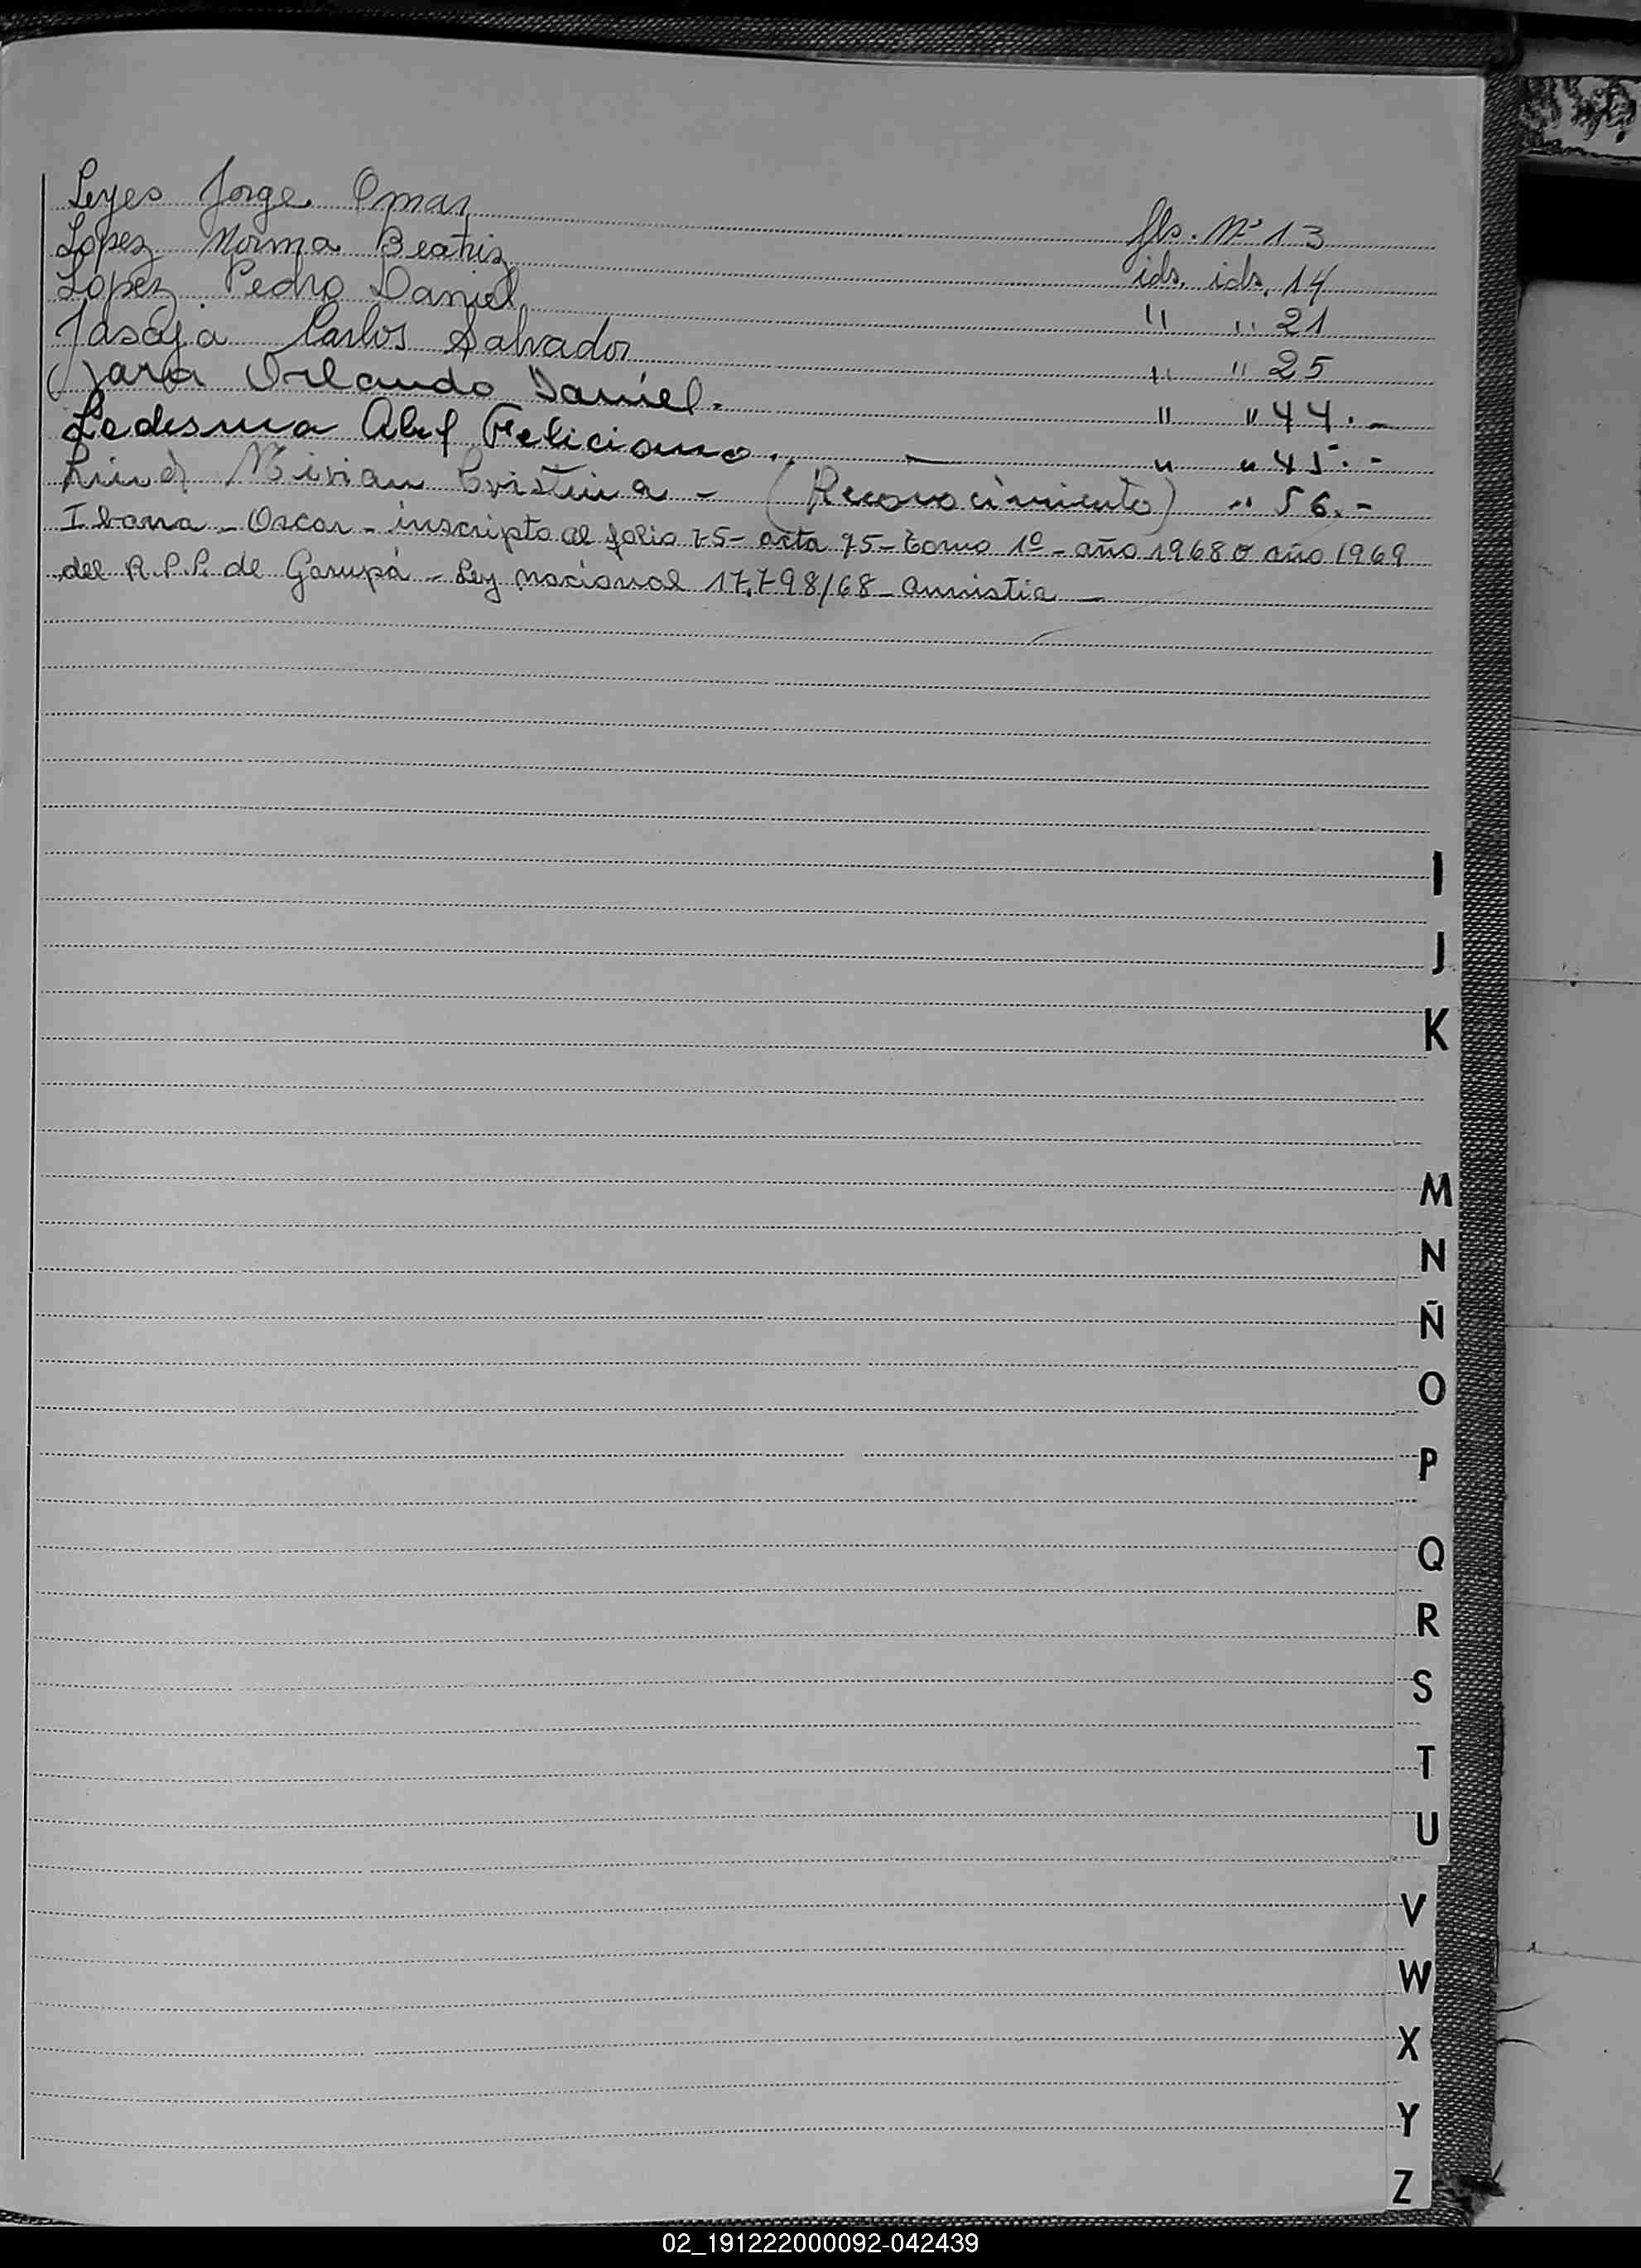 Leyes Jorge Omar fls. Nº 13
Lopez Norma Beatriz ids. ids. 14
Lopez Pedro Daniel " " 21
Jasaja Carlos Salvador " " 25
Jara Orlando Daniel. " " 44.-
Ledesma Abel Feliciano. - " " 45.-
Mirian Cristina - (Reconocimiento) " 56.-
Ibarra - Oscar - inscripto al folio 75- acta 75- tomo 1º - año 1968 o año 1969
del R.P.P. de Garupá - Ley nacional 17.798/68 - amnistia -
I
J
K
M
N
Ñ
O
P
Q
R
S
T
U
V
W
X
Y
Z
02_191222000092-042439